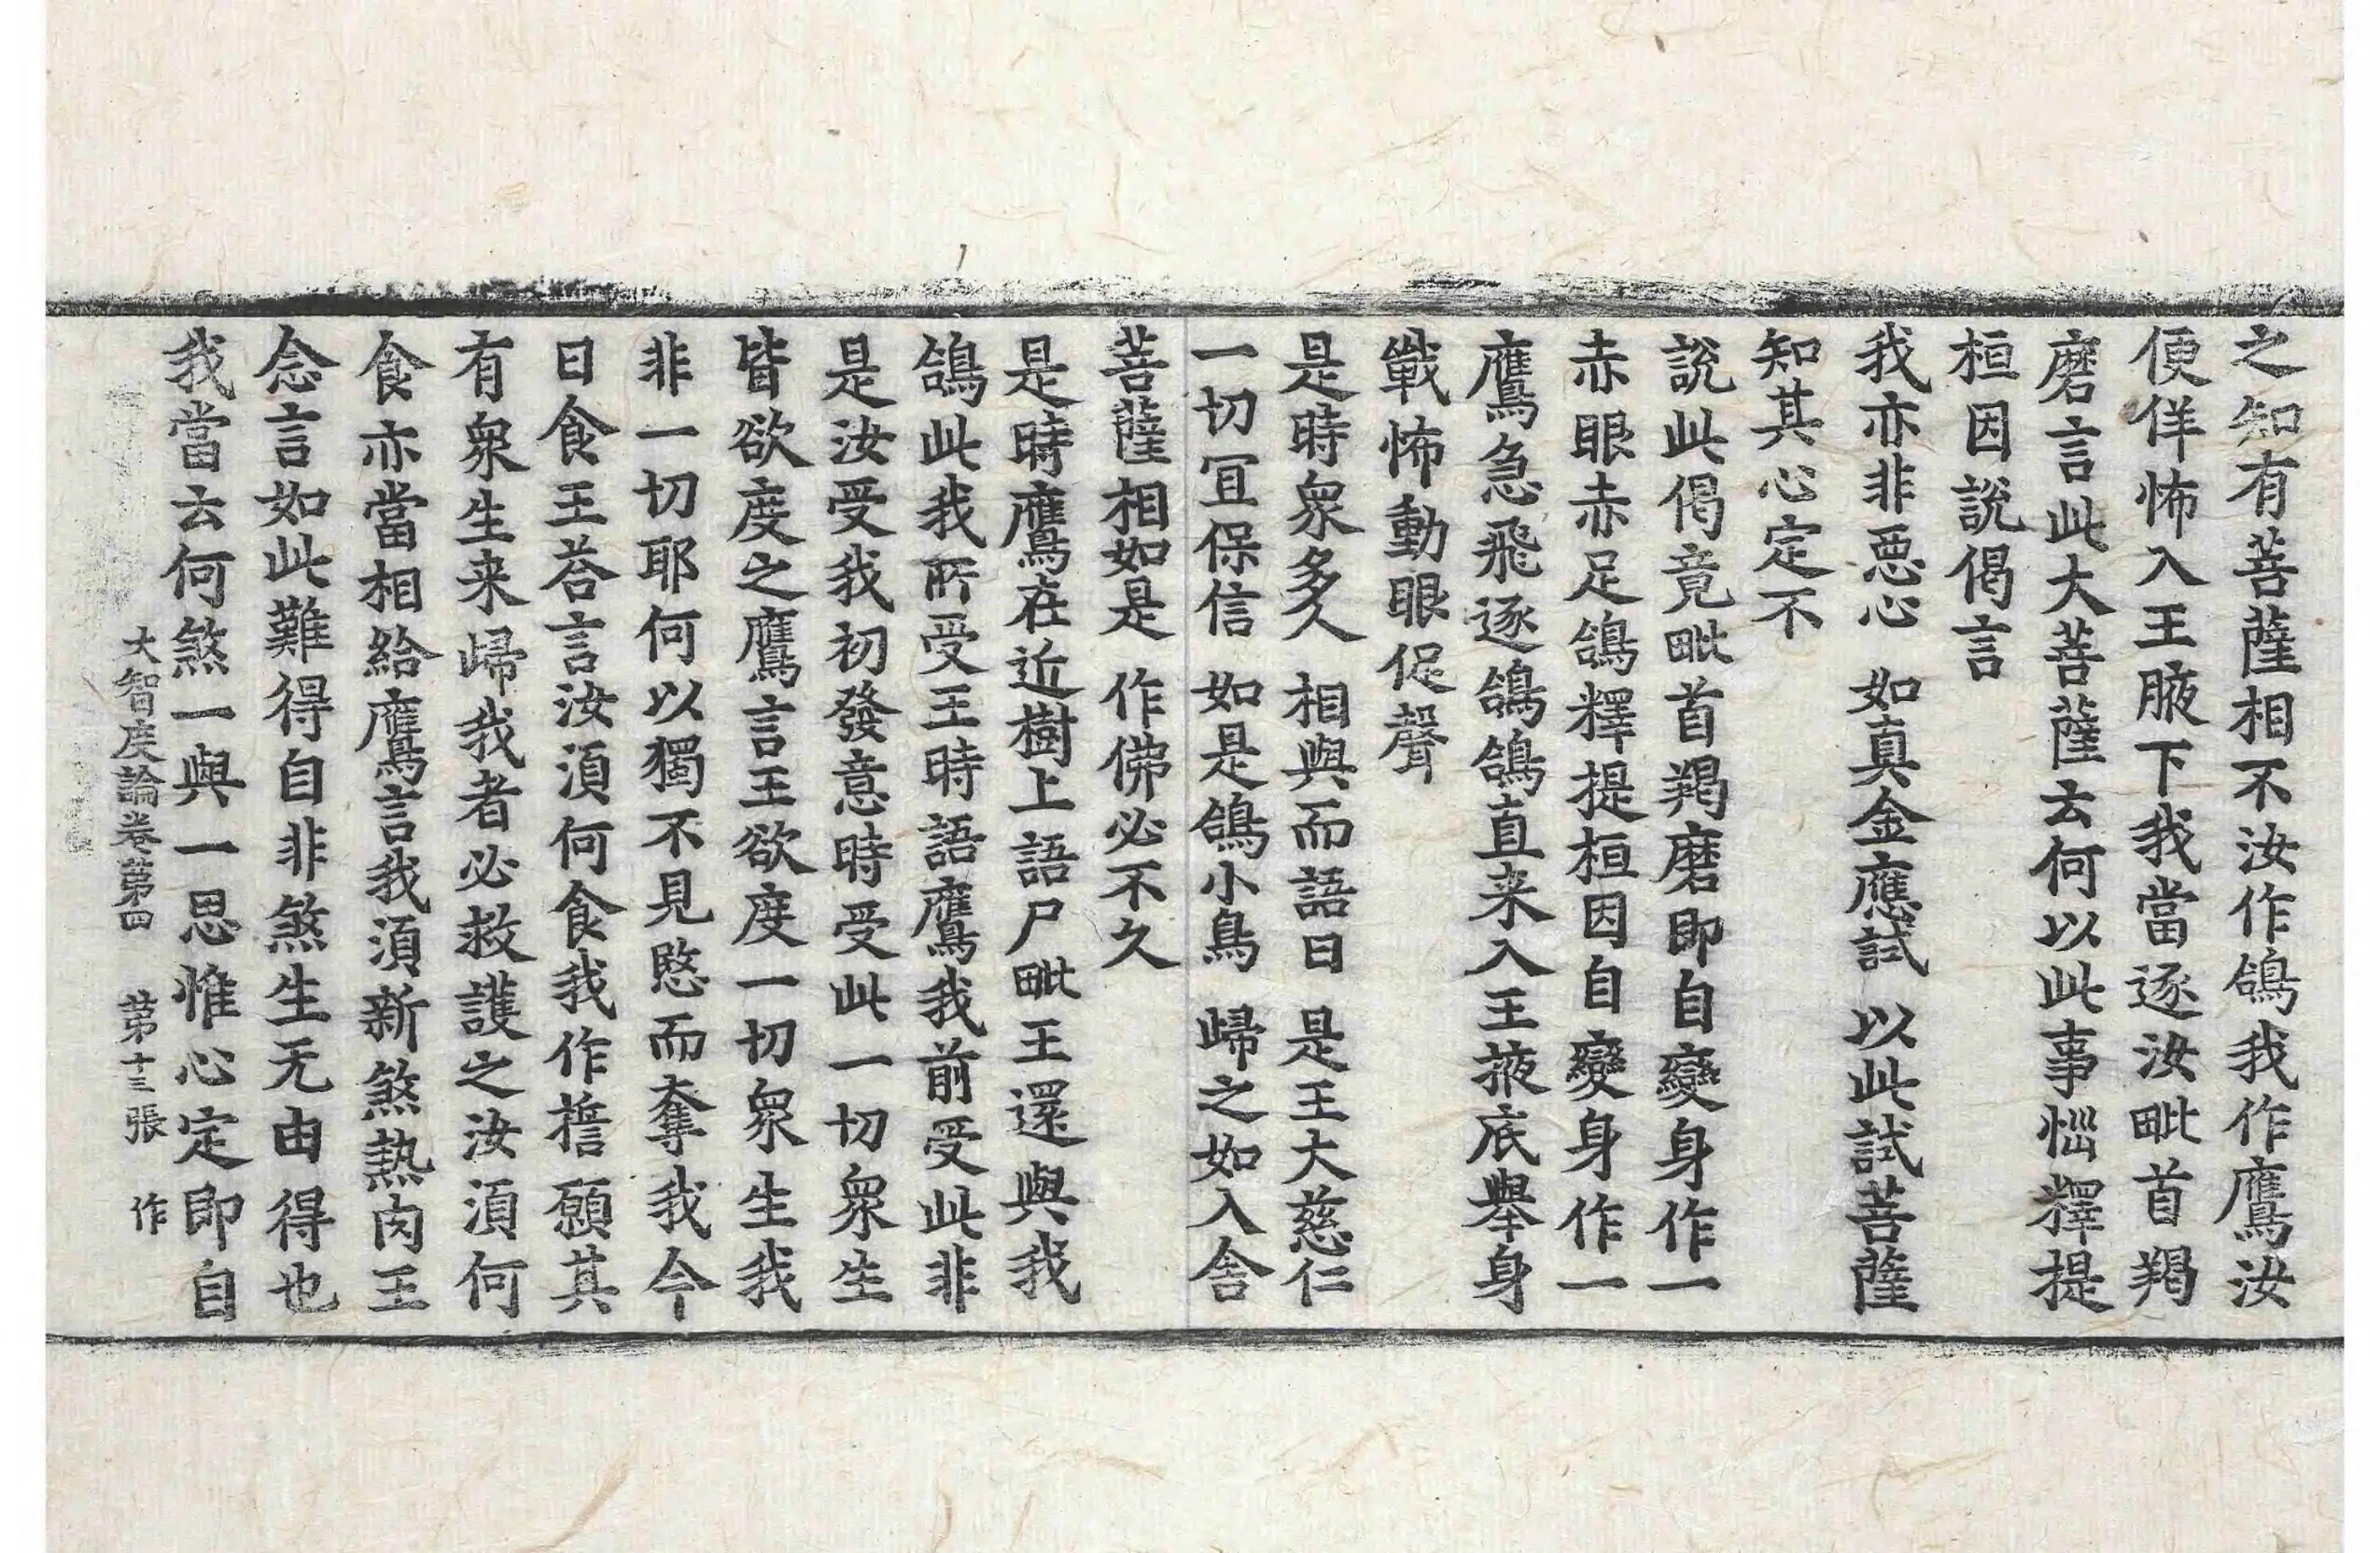 之知有菩薩相不汝作鴿我作鷹汝
便佯怖入王腋下我當逐汝毗首羯
磨言此大菩薩云何以此事惱釋提
桓因說偈言
我亦非惡心 如真金應試 以此試菩薩
知其心定不
說此偈竟毗首羯磨即自變身作一
赤眼赤足鴿釋提桓因自變身作一
鷹急飛逐鴿鴿直来入王掖底舉身
戰怖動眼促聲
是時衆多人 相與而語曰 是王大慈仁
一切冝保信 如是鴿小鳥 歸之如入舍
菩薩相如是 作佛必不久
是時鷹在近樹上語尸毗王還與我
鴿此我所受王時語鷹我前受此非
是汝受我初發意時受此一切衆生
皆欲度之鷹言王欲度一切衆生我
非一切耶何以獨不見愍而奪我今
日食王荅言汝湏何食我作誓願其
有衆生来歸我者必救護之汝湏何
食亦當相給鷹言我湏新煞熱肉王
念言如此難得自非煞生无由得也
我當云何煞一與一思惟心定即自
大智度論卷第四 第十三張 作